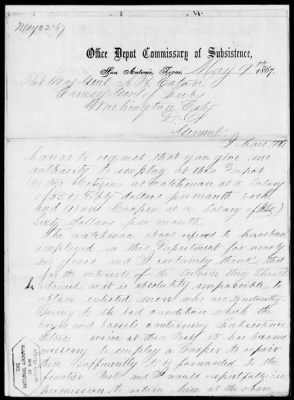 May 22 67
Office Depot Commissary of Subsistence,
San Antonio, Texas, May 9th 1867.
Bvt Maj Genl A. B. Eaton
Comssy Genl of Sub
Washington City
D. C.
General:
I have the
honor to request that you give me
authority to employ at this Depot
Citizens as Watchmen at a Salary
of ($50) fifty dollars per month each
and Cooper at a Salary of ($60)
Sixty dollars per month
The watchmen above refered to have been
employed in this Department for nearly
years and I certainly think that
for the interests of the Service they should
retained as it is absolutely impossible to
obtain enlisted men who are trustworthy.
Owing to the bad condition which the
and barrels containing Subsistence
Stores arrive at this Post it has become
necessary to employ a Cooper to repair
them sufficiently to be forwarded to the
frontier Posts and I would respectfully
permission to retain him at the above
THE
NATIONAL ARCHIVES
OF THE
UNITED STATES